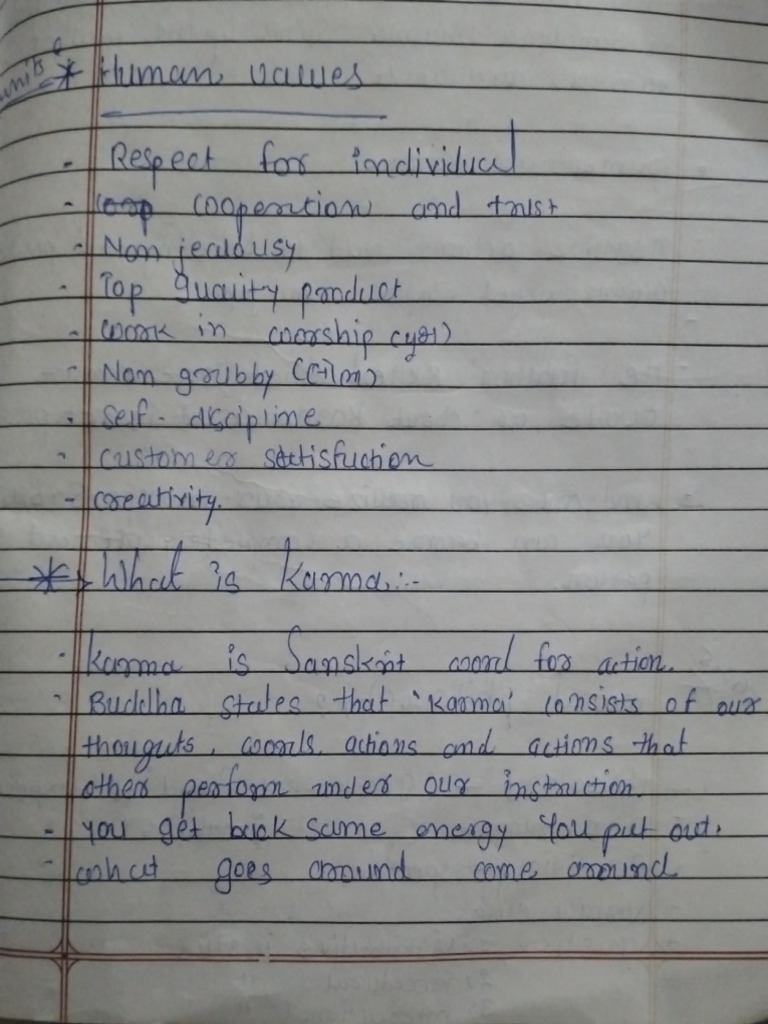 unit 6
* Human values
- Respect for individual
- cooperation and trust
- Non jealousy
- Top quality product
- work in worship
- Non grubby
- Self-discipline
- customer satisfaction
- creativity.
* What is karma:-
- karma is Sanskrit word for action.
- Buddha states that 'karma' consists of our
thouguts, words, actions and actions that
other perform under our instruction.
- you get back same energy you put out.
- what goes around come around